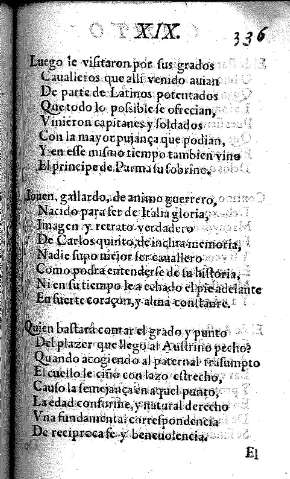 XIX.
336
Luego le visitaron por sus grados
Caualleros que alli venido auian
De parte de Latinos potentados
Que todo lo possible se ofrecian,
Vinieron capitanes y soldados
Con la mayor pujança que podian,
Y en esse mismo tiempo tambien vino
El principe de Parma su sobrino.
Iouen, gallardo, de animo guerrero,
Nacido para ser de Italia gloria,
Imagen y retrato verdadero
De Carlos quinto, de inclita memoria,
Nadie supo mejor ser cauallero
Como podra entenderse de su historia,
Ni en su tiempo le a echado el pie adelante
En fuerte coraçon, y alma constante.
Quien bastará contar el grado y punto
Del plazer que llegó al Austrino pecho?
Quando acogiendo al paternal trasumpto
El cuello le ciño con lazo estrecho,
Causo la semejança en aquel punto,
La edad conforme, y natural derecho
Vna fundamental correspondencia
De reciproca fe y beneuolencia.
El